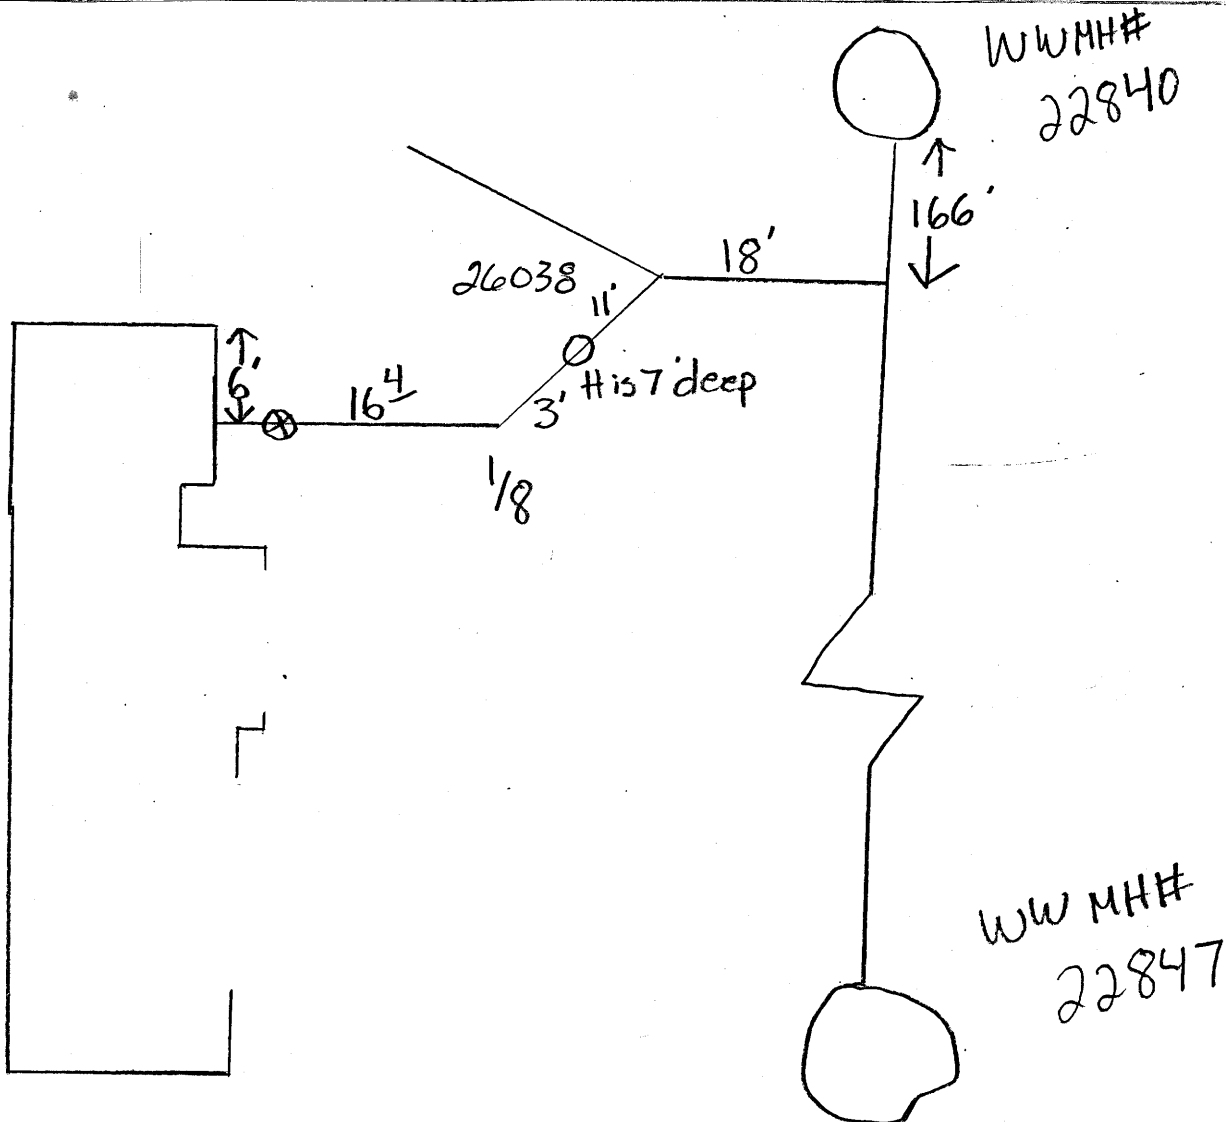 WWMH#
22840
166'
18'
26038
11'
6'
16 4
H is 7' deep
3'
1/8
WW MH#
22847